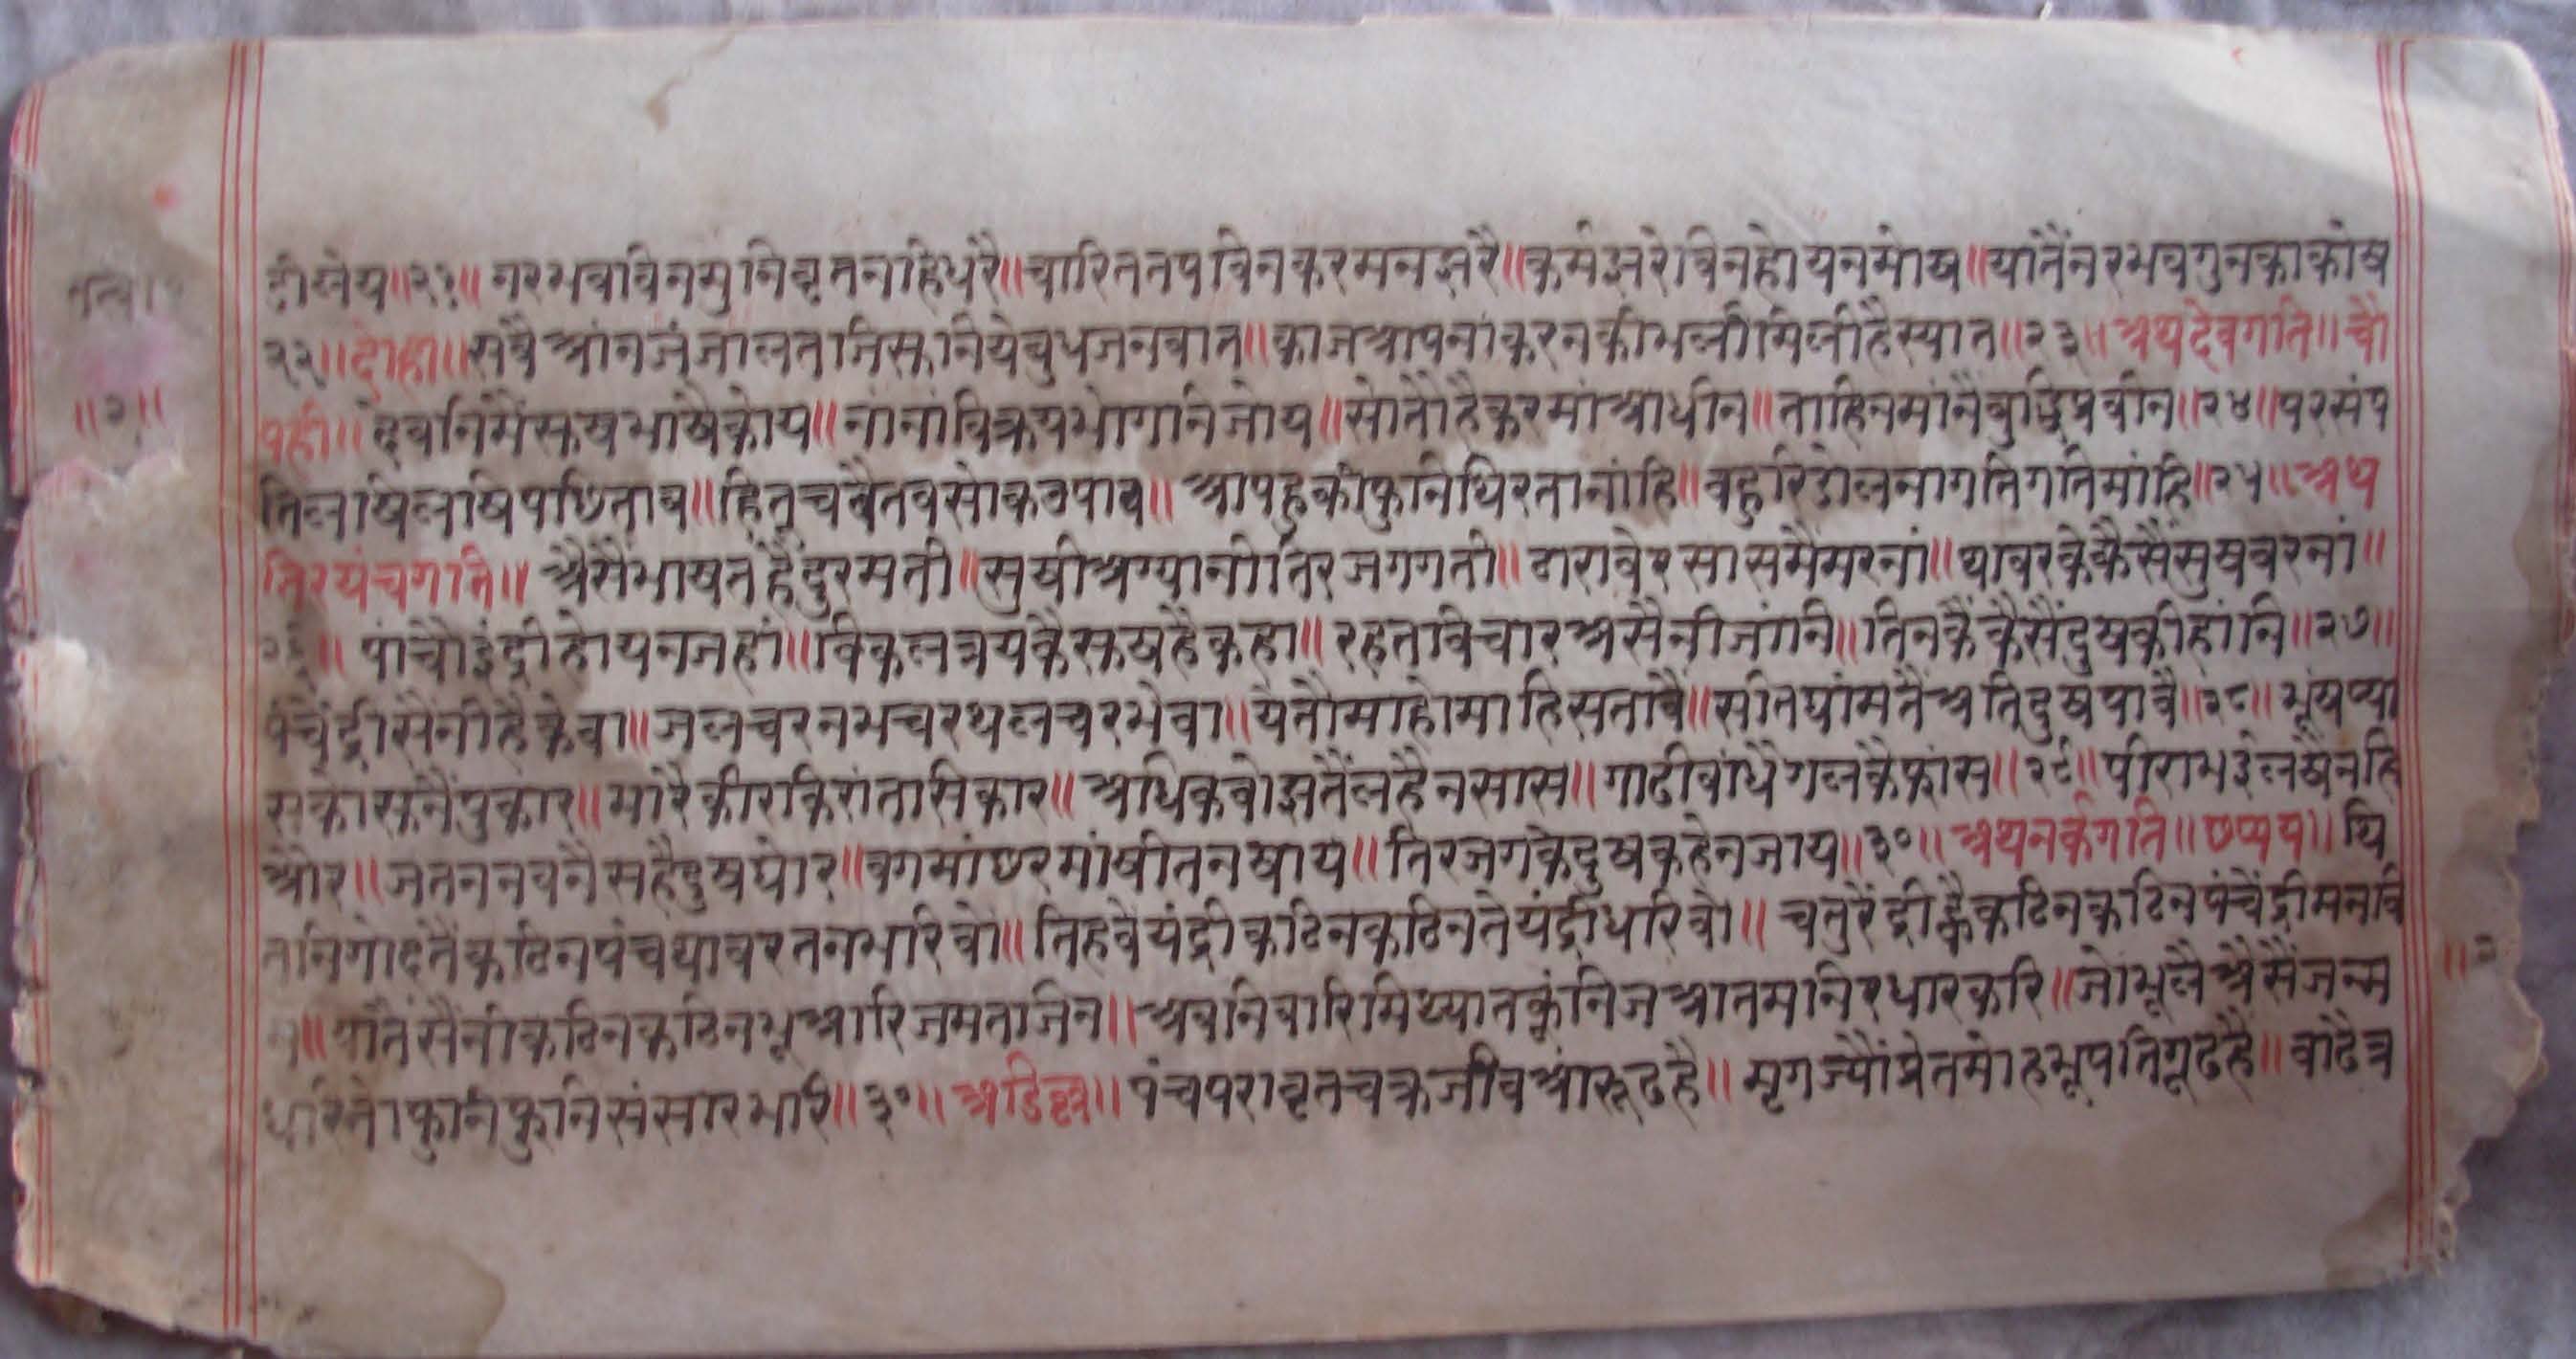 हीलेय॥२१॥ नरभवविनमुनिवृतनहिधरै॥चारिततपविनकरमनझरै॥कर्मझरेविनहोयनमोष॥यातैंनरभवगुनकाकोष
२२॥दोहा॥सवैआंनजंजालतजिसुनियेबुधजनवात॥काजआपनांकरनकीभलीमिलीहैस्यात॥२३॥अथदेवगति॥चौ
॥२॥
पही॥देवनिमैंसुषभाषैकोय॥नांनांविक्रयभोगनिजोय॥सोतौहैकरमांआधीन॥ताहिनमांनैबुद्धिप्रवीन॥२४॥परसंप
तिलषिलषिपछिताव॥हितूचवैतवसोकउपाव॥आपहुकीफुनिथिरतानांहि॥वहुरिडोलनागतिगतिमांहि॥२५॥अथ
तिरयंचगति॥ अैसैंभाषतहैंदुरमती॥सुषीअग्यानीतिरजगगती॥ठारावेरसासमैमरनां॥थावरकेकैसैंसुषवरनां॥
२६॥ पांचौइंद्रीहोयनजहां॥विकलत्रयकैसुषहैकहा॥रहतविचारअसैनीजांनि॥तिनकैंकैसैंदुषकीहांनि॥२७॥
पंचेंद्रीसैनीहैकेवा॥जलचरनभचरथलचरभेवा॥येतौमाहोमाहिसतावै॥सीतघांमतैंअतिदुषपावै॥२८॥भूंषप्या
सकोसुनैंपुकार॥मारैकीरकिरांतासिकार॥अधिकवोझतैंलहैनसास॥गाढीवांधैगलकैफांस॥२९॥पीराभईलषैनहि
ओर॥जतननवनैसहैदुषघोर॥वगमांछरमांषीतनषाय॥तिरजगकेदुषकहेनजाय॥३०॥अथनर्कगति॥छप्पय॥थि
तनिगोदतैंकठिनपंचथावरतनभरिवो॥तिहवेयंद्रीकठिनकठिनतेयंद्रीधरिवो॥चतुरेंद्रीह्वैकठिनकठिनपंचेंद्रीमनवि
न॥यातैंसैंनीकठिनकठिनभूआरिजमतजिन॥अवनिवारिमिथ्यातकूंनिजआतमनिरधारकरि॥जोभूलैअैसैंजन्म
॥२
धरितोफुनिफुनिसंसारभरि॥३१॥अडिल्ल॥पंचपरावृतचक्रजीवआरूढहै॥मृगज्यौंप्रेतमोहभूपतिगूढहै॥वाढैत्र